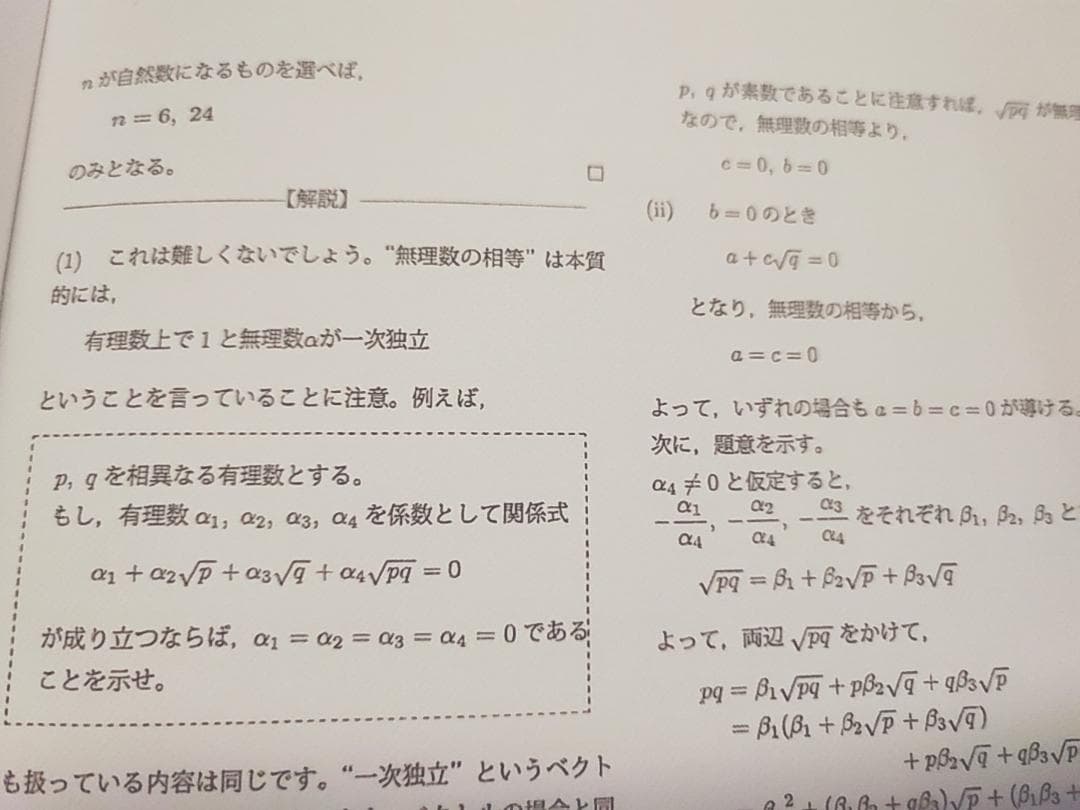 nが自然数になるものを選べば,
n = 6, 24
のみとなる。
□
【解説】
(1) これは難しくないでしょう。“無理数の相等” は本質
的には,
有理数上で 1 と無理数αが一次独立
ということを言っていることに注意。例えば,
p, q を相異なる有理数とする。
もし, 有理数 α₁, α₂, α₃, α₄ を係数として関係式
α₁ + α₂√p + α₃√q + α₄√pq = 0
が成り立つならば, α₁ = α₂ = α₃ = α₄ = 0 である
ことを示せ。
も扱っている内容は同じです。“一次独立” というベクト
p, q が素数であることに注意すれば, √pq が無理
なので, 無理数の相等より,
c = 0, b = 0
(ii) b = 0 のとき
a + c√q = 0
となり, 無理数の相等から,
a = c = 0
よって, いずれの場合も a = b = c = 0 が導ける。
次に, 題意を示す。
α₄ ≠ 0 と仮定すると,
−α₁/α₄, −α₂/α₄, −α₃/α₄ をそれぞれ β₁, β₂, β₃ と
√pq = β₁ + β₂√p + β₃√q
よって, 両辺 √pq をかけて,
pq = β₁√pq + pβ₂√q + qβ₃√p
= β₁(β₁ + β₂√p + β₃√q)
+ pβ₂√q + qβ₃√p